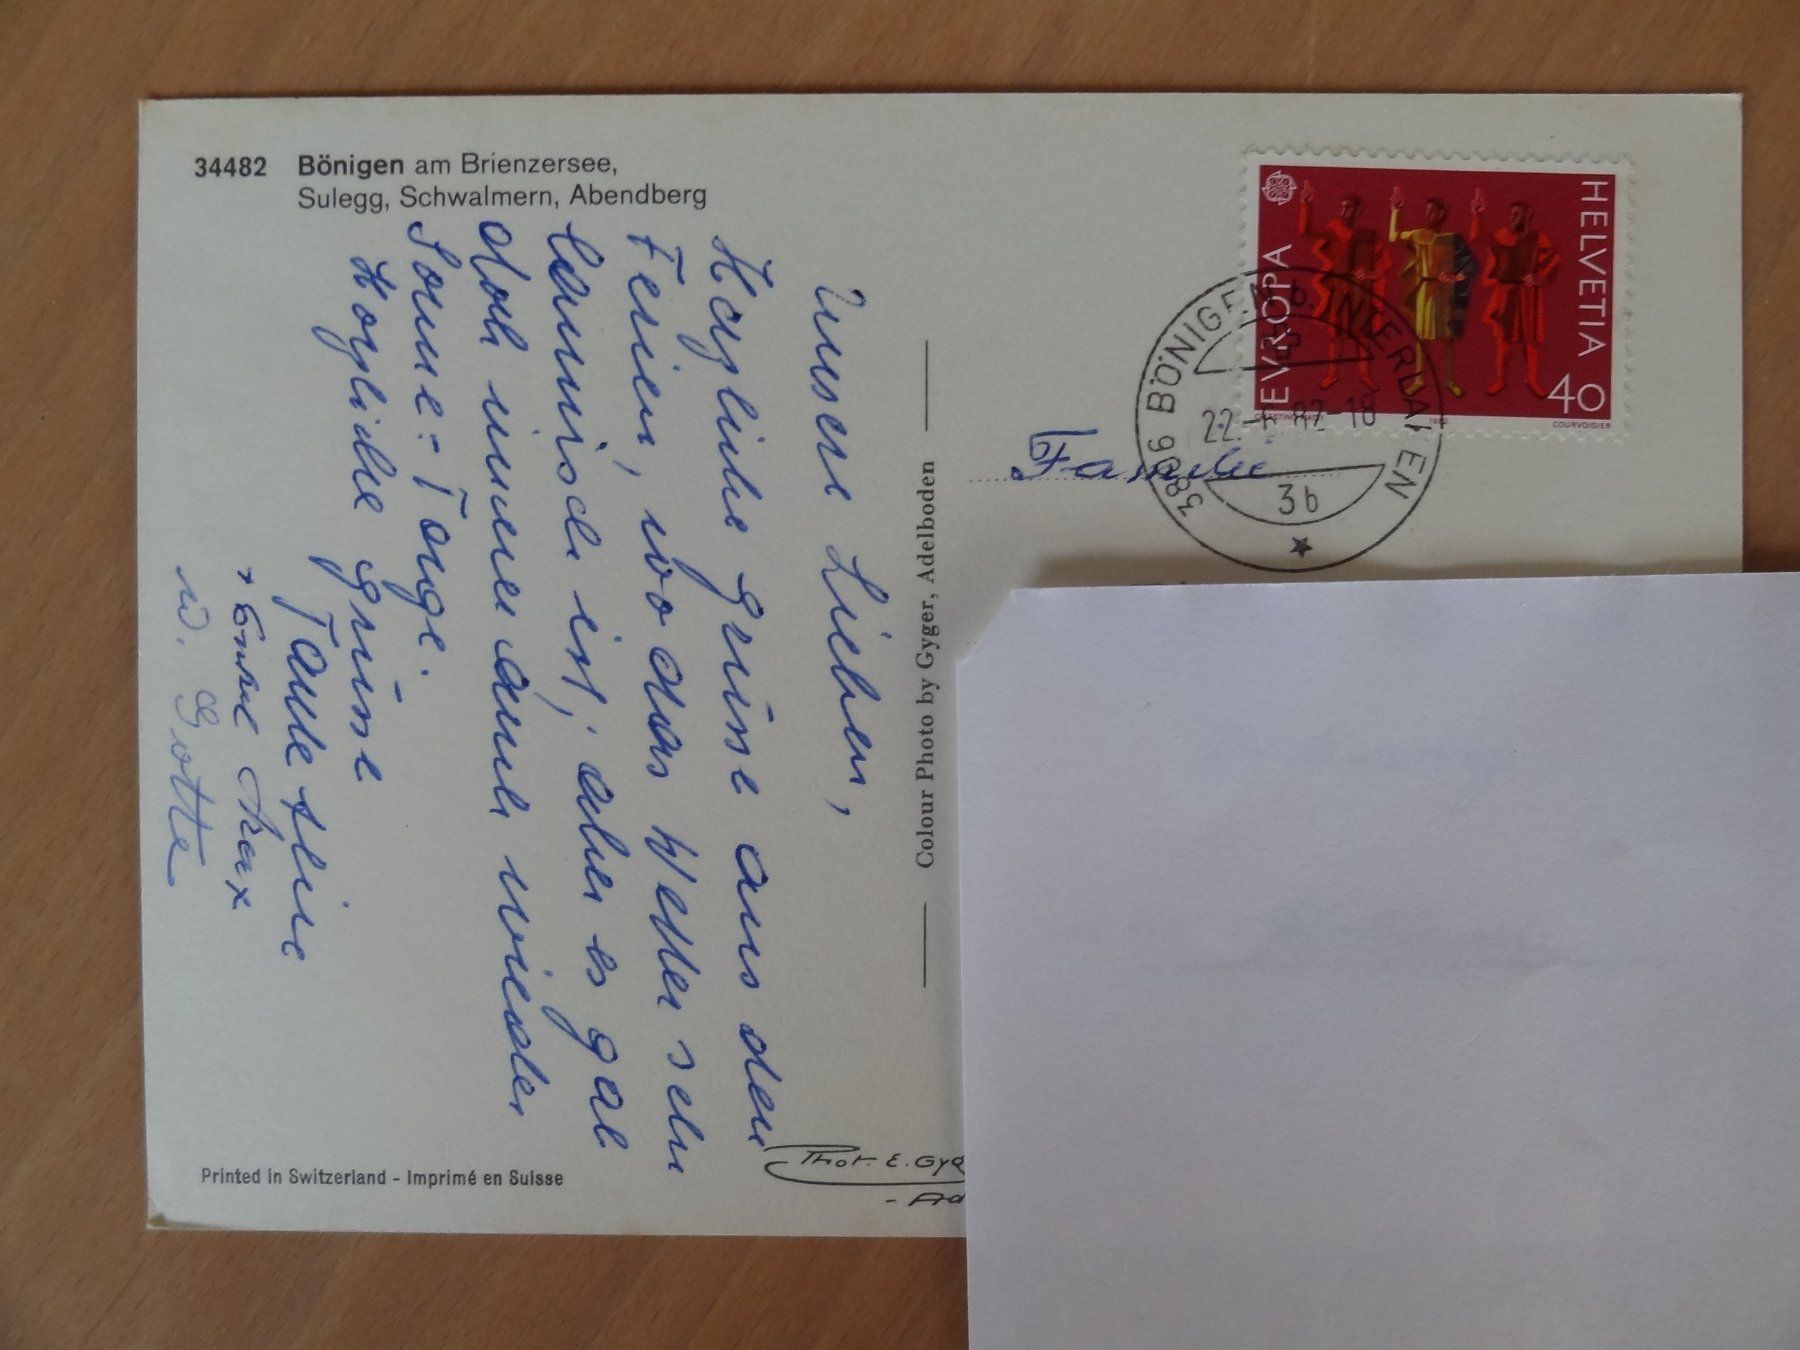 34482 Bönigen am Brienzersee,
Sulegg, Schwalmern, Abendberg
Unsere Lieben,
Herzliche Grüsse aus den
Ferien, wo das Wetter sehr
launisch ist, aber es gab
doch immer auch wieder
Sonne-Tage.
Herzliche Grüsse
Tante
Max
u. Gotte
Colour Photo by Gyger, Adelboden
Printed in Switzerland - Imprimé en Suisse
Phot. E. Gyg
- Ad
HELVETIA
EVROPA
40
COURVOISIER
1982
3806 BÖNIGEN b. INTERLAKEN
22. 82-18
3b
Familie